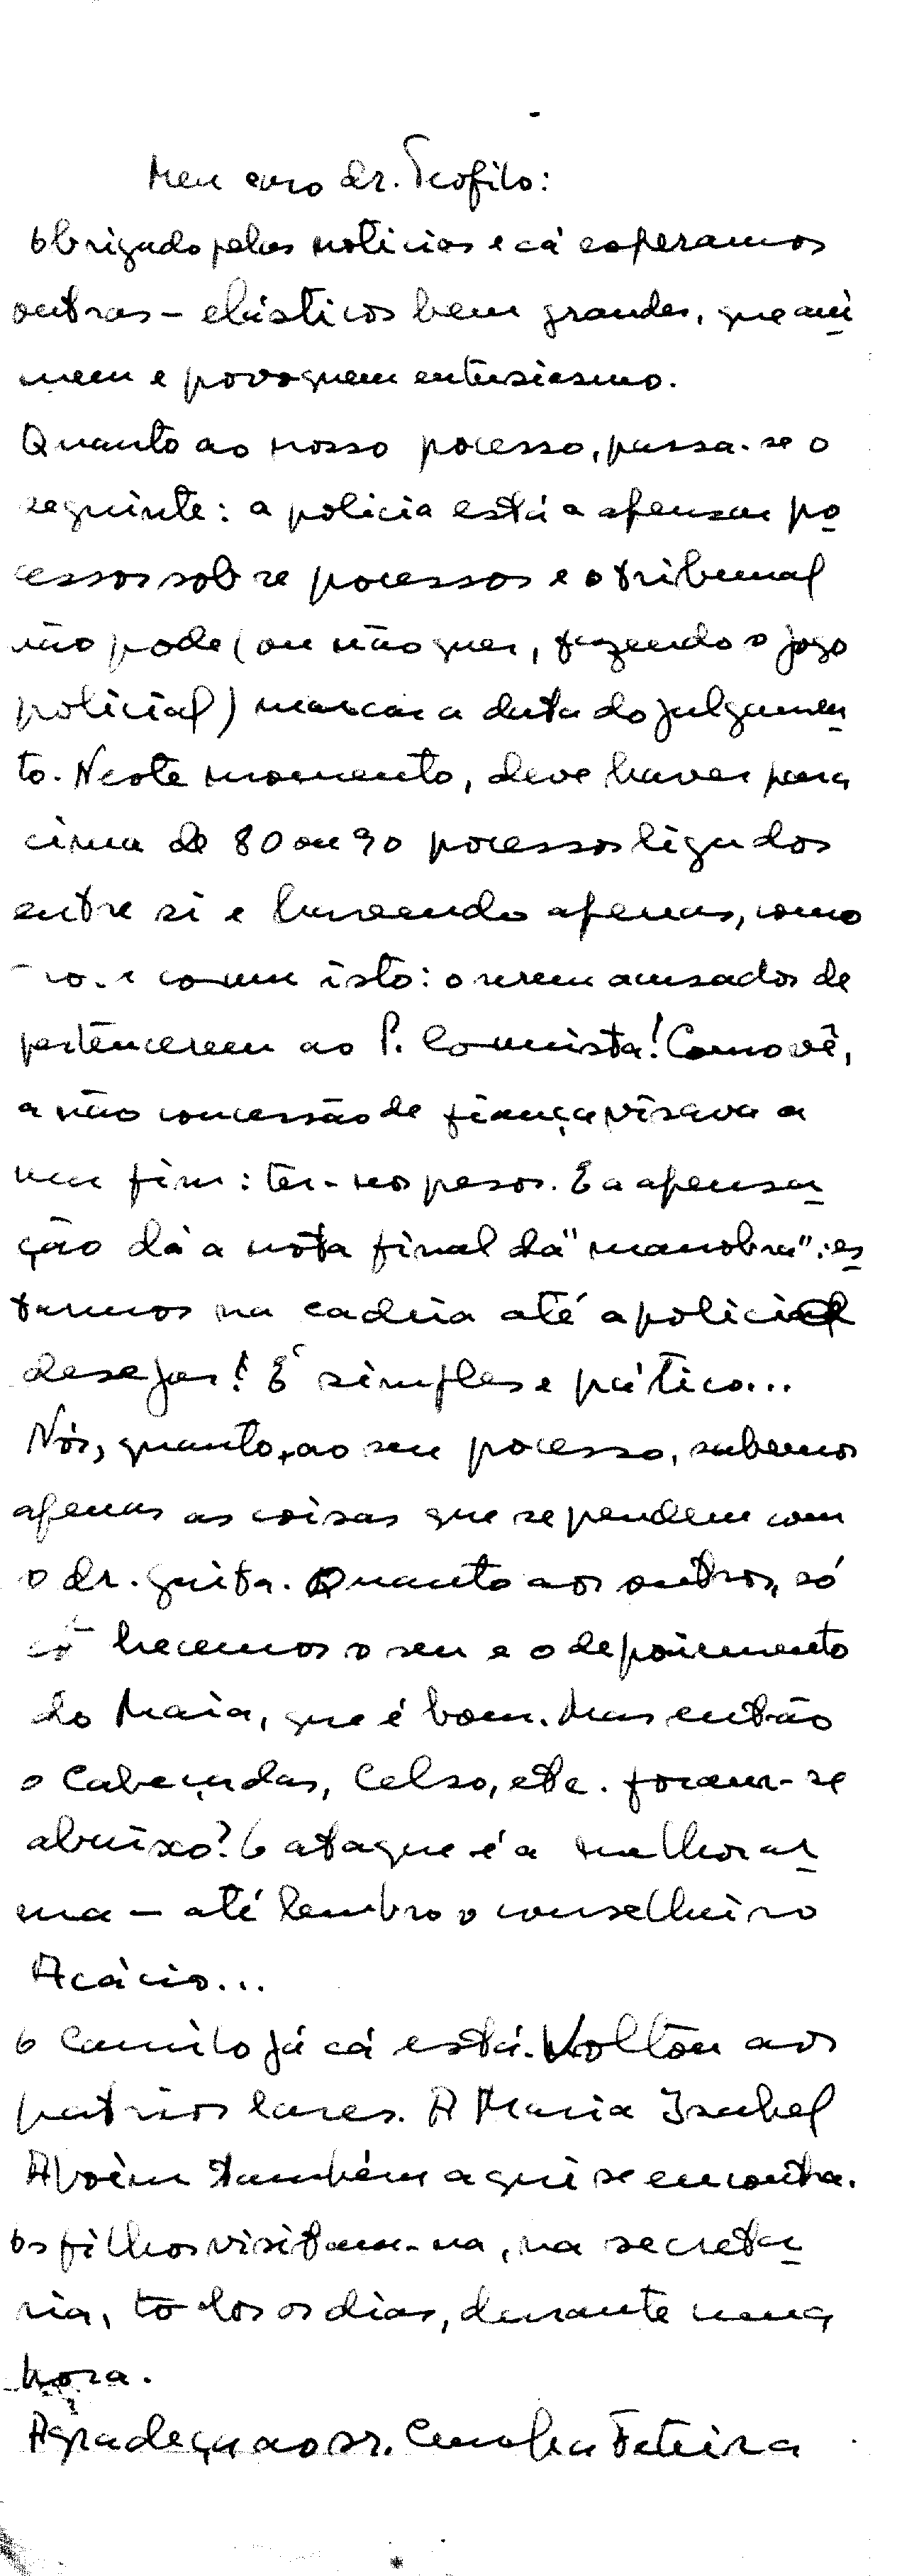 Meu caro dr. Teofilo:
Obrigado pelas noticias e cá esperamos
outras – elásticos bem grandes, que ani
mem e povoquem entusiasmo.
Quanto ao nosso pocesso, passa-se o
seguinte: a policia está a apensar po
cessos sobre pocessos e o tribunal
não pode (ou não quer, fazendo o jogo
policial) marcar a data do julgamen
to. Neste momento, deve haver para
cima de 80 ou 90 pocessos ligados
entre si e havendo apenas, como
comum isto: o serem acusados de
pertencerem ao P. Comunista! Como vê,
a não concessão de fiança visava a
um fim: ter-nos pesos. E a apensa
ção dá a nota final da "manobra": es
tarmos na cadeia até a policia
desejar! É simples e pático...
Nós, quanto ao seu pocesso, sabemos
apenas as coisas que se pendem com
o dr. Guita. Quanto aos outros, só
cohecemos o seu e o depoimento
do Maia, que é bom. Mas então
o Cabeçadas, Celso, etc. foram-se
abaixo? O ataque é a melhor ar
ma – até lembro o conselheiro
Acácio...
O Camilo já cá está. Voltou aos
patrios lares. A Maria Isabel
Aboim também aqui se encontra.
Os filhos visitam-na, na secreta
ria, todos os dias, durante uma
hora.
Agradeça ao sr. Cunha Feteira